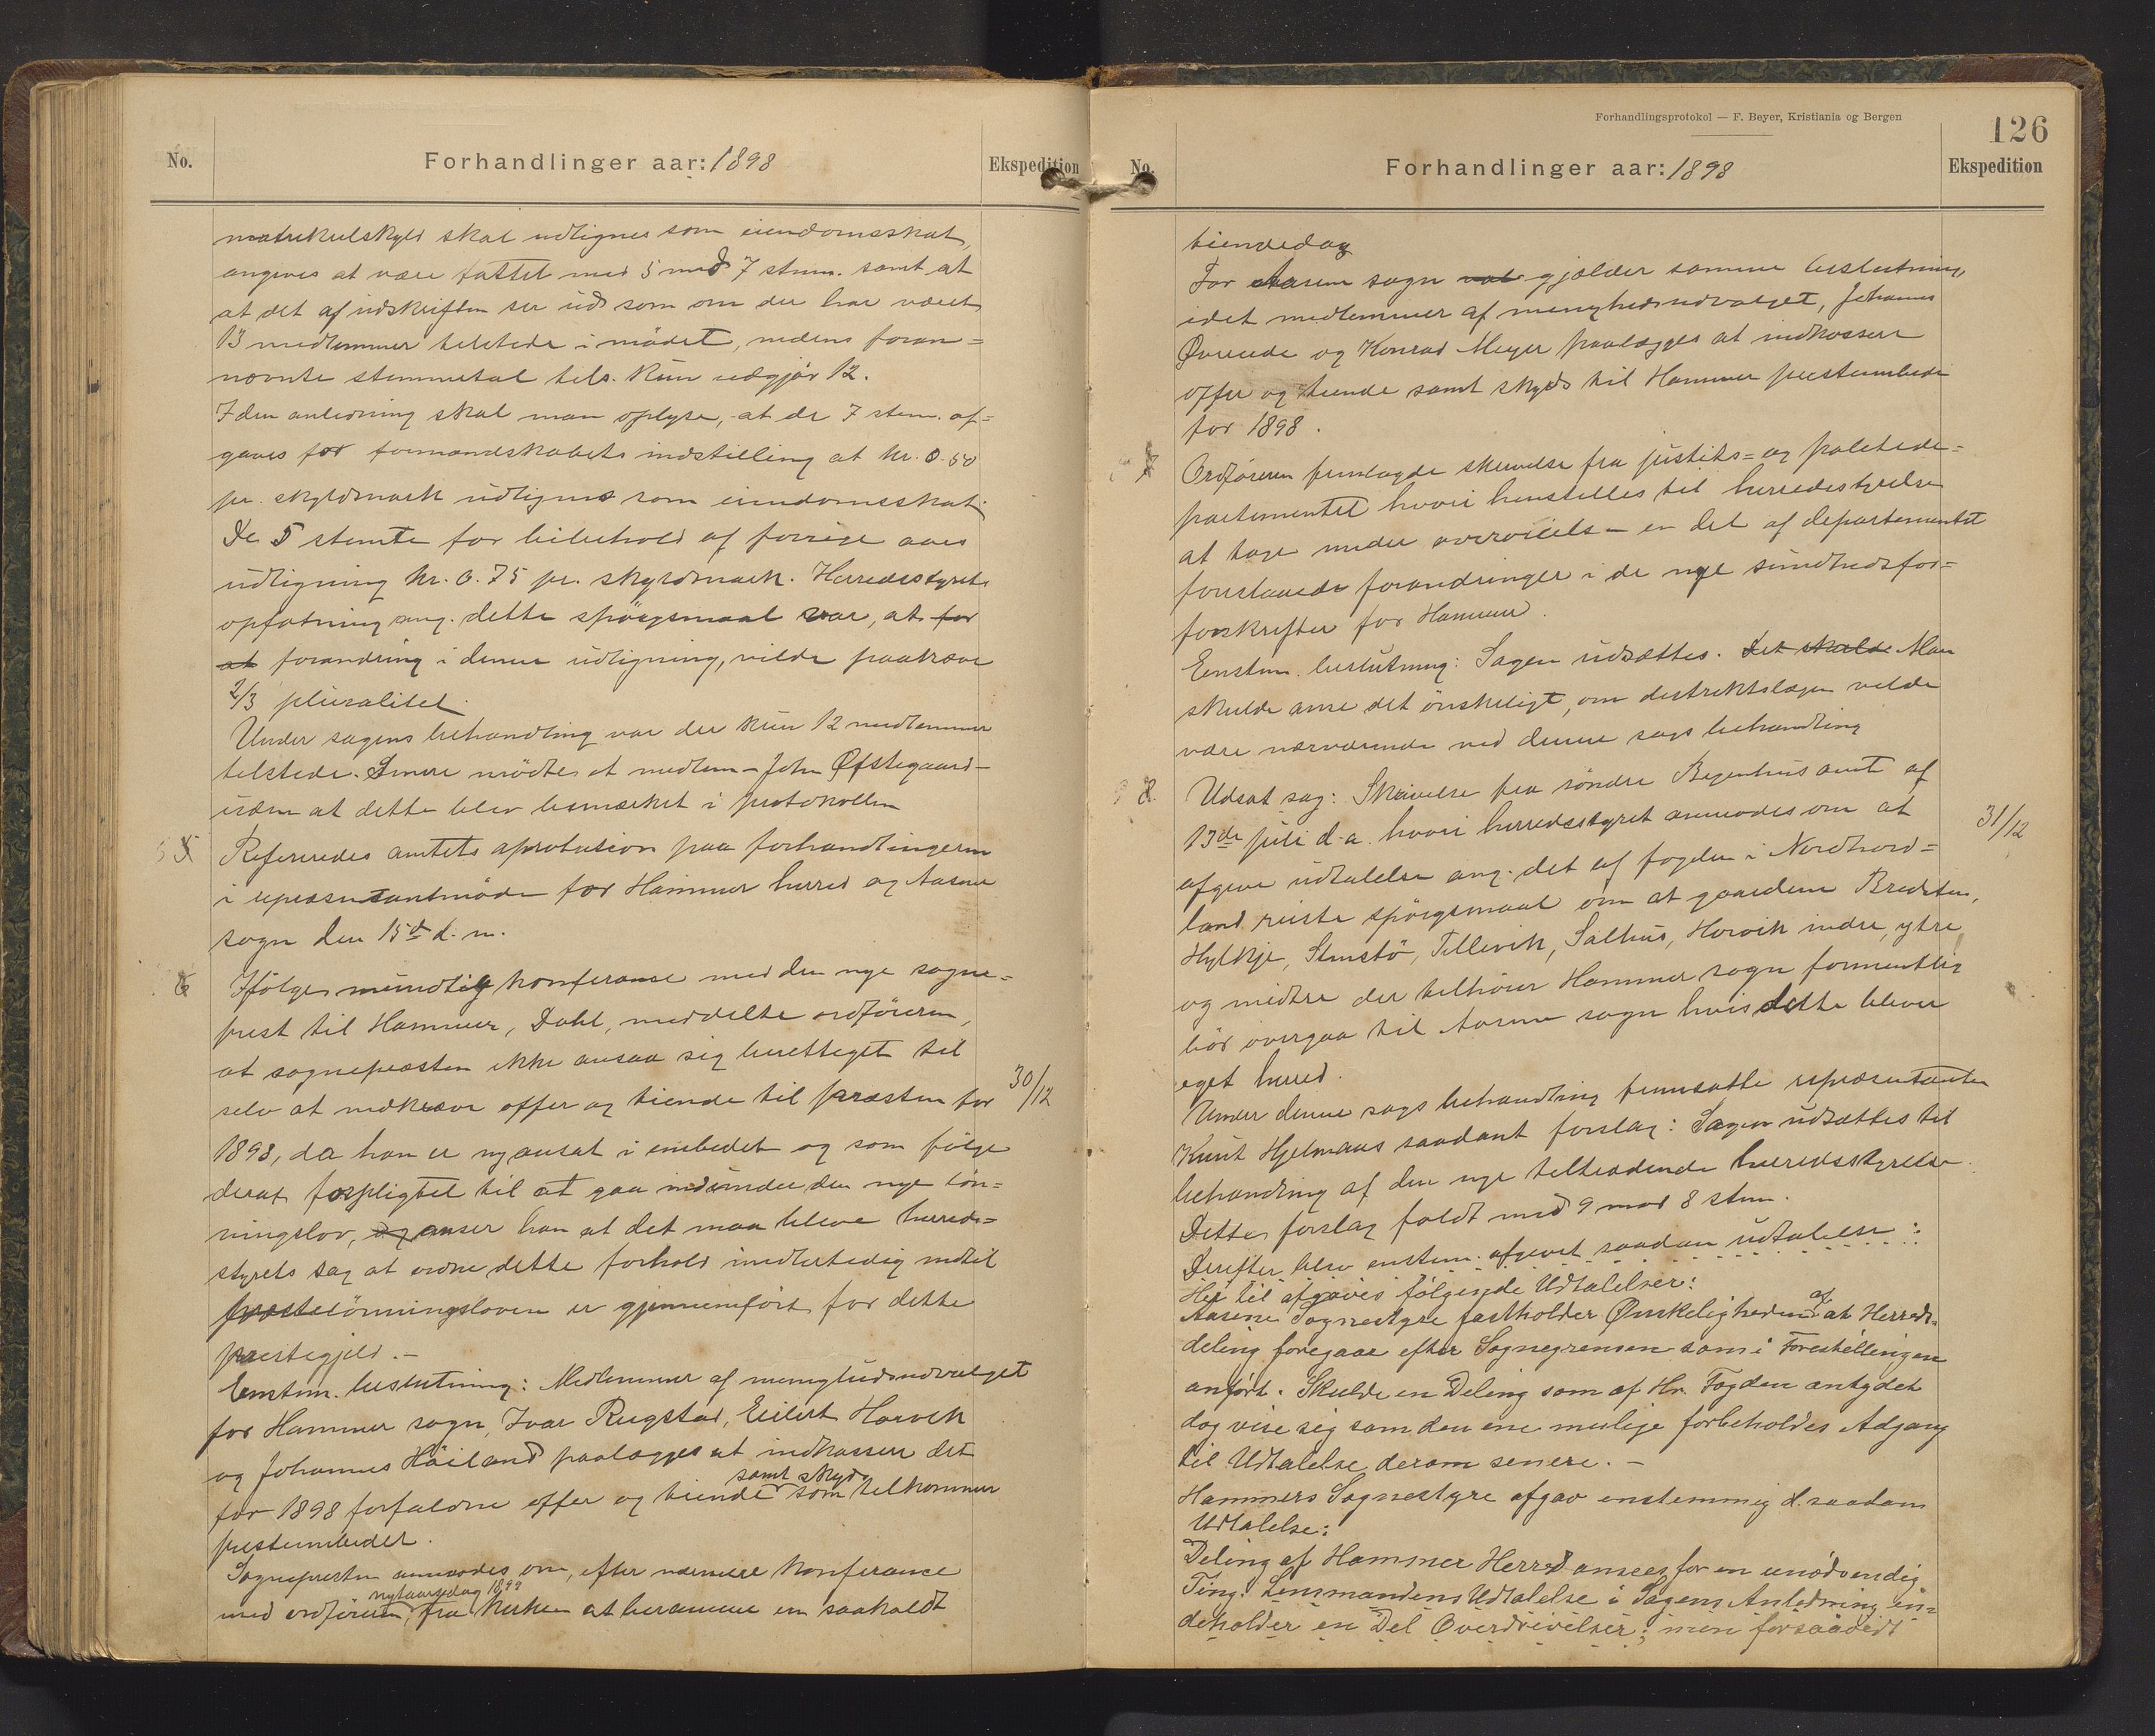 No.
Forhandlinger aar: 1898
Ekspedition
matrikulskyld skal udlignes som eiendomsskat,
angives at være fattet med 5 mod 7 stem. samt at
at det af udskriften ser ud som om der har været
13 medlemmer tilstede i mødet, medens foran=
nævnte stemmetal tils. kun udgjør 12.
I den anledning skal man oplyse, at de 7 stem. af=
gaves for formandskabets indstilling at kr. 0.50
pr. skyldmark udlignes som eiendomsskat.
De 5 stemte for bibehold af forrige aars
udligning kr. 0.75 pr. skyldmark. Herredsstyrets
opfatning ang. dette spørgsmaal var, at for
at forandring i denne udligning, vilde paakræve
2/3 pluralitet.
Under sagens behandling var der kun 12 medlemmer
tilstede. Senere mødte et medlem – John Øfstegaard –
uden at dette blev bemærket i protokollen
5 Refereredes amtets aprobation paa forhandlingerne
i repræsentantmøde for Hammer herred og Aasene
sogn den 15de d. m.
6 Ifølge mundtlig konferanse med den nye sogne=
prest til Hammer, Dahl, meddelte ordføreren,
at sognepræsten ikke ansaa sig berettiget til
selv at indkræve offer og tiende til præsten for
30/12
1898, da han er ny ansat i embedet og som følge
deraf forpligtet til at gaa ind under den nye løn=
ningslov, og anser han at det maa blive herreds=
styrets sag at ordne dette forhold imidlertidig indtil
præstelønningsloven er gjennemført for dette
prestegjeld. –
Enstem. beslutning: Medlemmer af menighedsudvalget
for Hammer sogn, Ivar Rugstad, Eilert Horvik
og Johannes Høiland paalægges at indkassere det
samt skyds
for 1898 forfaldne offer og tiende som tilkommer
prestembedet.
Sognepresten anmodes om, efter nærmere konferance
nytaarsdag 1899
med ordføreren, fra kirken at beramme en saakaldt
Forhandlingsprotokol — F. Beyer, Kristiania og Bergen
126
No.
Forhandlinger aar: 1898
Ekspedition
tiendedag
For Aasene sogn gjælder samme beslutning,
idet medlemmer af menighedsudvalget, Johannes
Øvreeide og Konrad Meyer paalægges at indkassere
offer og tiende samt skyds til Hammer prestembede
for 1898.
7 Ordføreren fremlagde skrivelse fra justits= og politide=
partementet hvori henstilles til herredsstyrelsen
at tage under overveielse en del af departementet
foreslaaede forandringer i de nye sundhedsfor=
forskrifter for Hammer.
Enstem. beslutning: Sagen udsættes. Det skulde Man
skulde anse det ønskeligt, om distriktslægen vilde
være nærværende ved denne sags behandling
8. Udsat sag: Skrivelse fra søndre Bergenhus amt af
13de juli d. a. hvori herredsstyret anmodes om at
31/12
afgive udtalelse ang. det af fogden i Nordhord=
land reiste spørgsmaal om at gaardene Breisten,
Hylkje, Stenstø, Tellevik, Salhus, Horvik indre, ytre
og midtre der tilhører Hammer sogn formentlig
bør overgaa til Aasene sogn hvis dette bliver
eget herred.
Under denne sags behandling fremsatte repræsentanten
Knut Hjelmaas saadant forslag: Sagen udsættes til
behandling af den nye tiltrædende herredsstyrelse.
Dette forslag faldt med 9 mod 8 stem.
Derefter blev enstem. afgivet saadan udtalelse:
Her til afgaves følgende Udtalelser:
Aasene Sognestyre fastholder Ønskeligheden af at Herreds=
deling foregaar efter Sognegrensen som i Forestillingen
anført. Skulde en Deling som af Hr. Fogden antydet
dog vise sig som den ene mulige forbeholdes Adgang
til Udtalelse derom senere. –
Hammers Sognestyre afgav enstemmig d. saadan
Udtalelse:
Deling af Hammer Herred ansees for en unødvendig
Ting. Lensmandens Udtalelse i Sagens Anledning in=
deholder en Del Overdrivelser; men forsaavidt